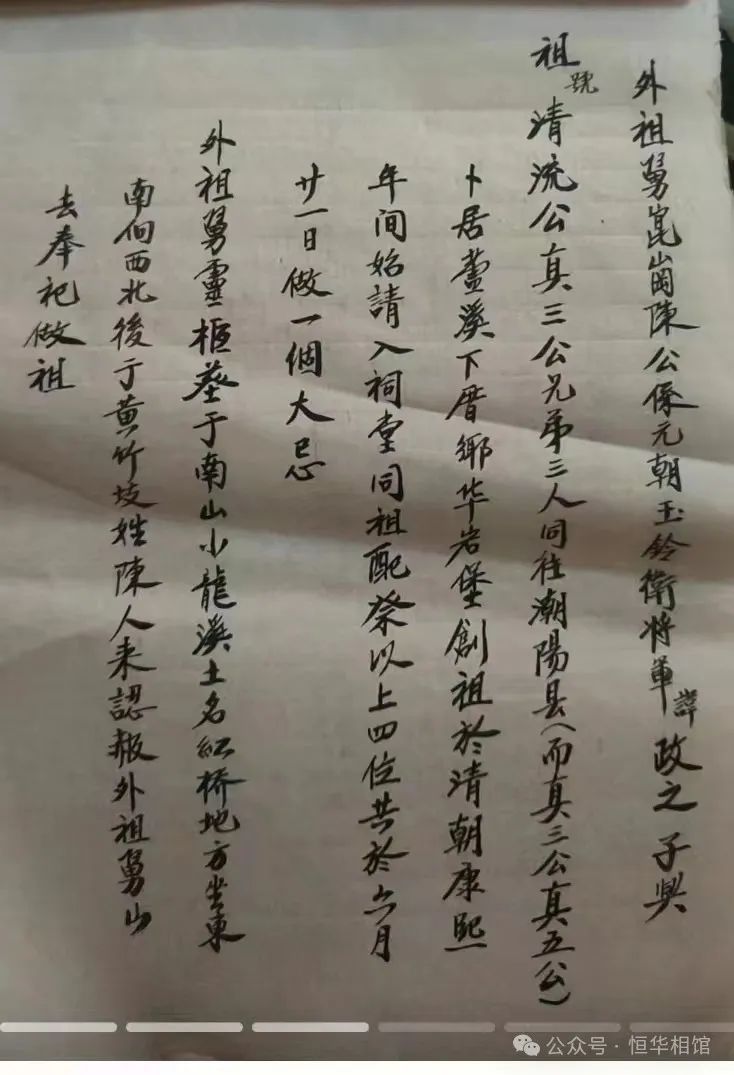 外祖舅崑崗陳公係元朝玉鈐衛将軍諱政之子與
祖號清流公真三公兄弟三人同往潮陽县(而真三公真五公)
卜居蘆溪下厝鄉华岩堡創祖於清朝康熙
年间始請入祠堂同祖配祭以上四位共於六月
廿一日做一個大忌
外祖舅靈柩葬于南山小龍溪土名紅桥地方坐東
南向西北後于黄竹坟姓陳人来認報外祖舅山
去奉祀做祖
公众号·恒华相馆